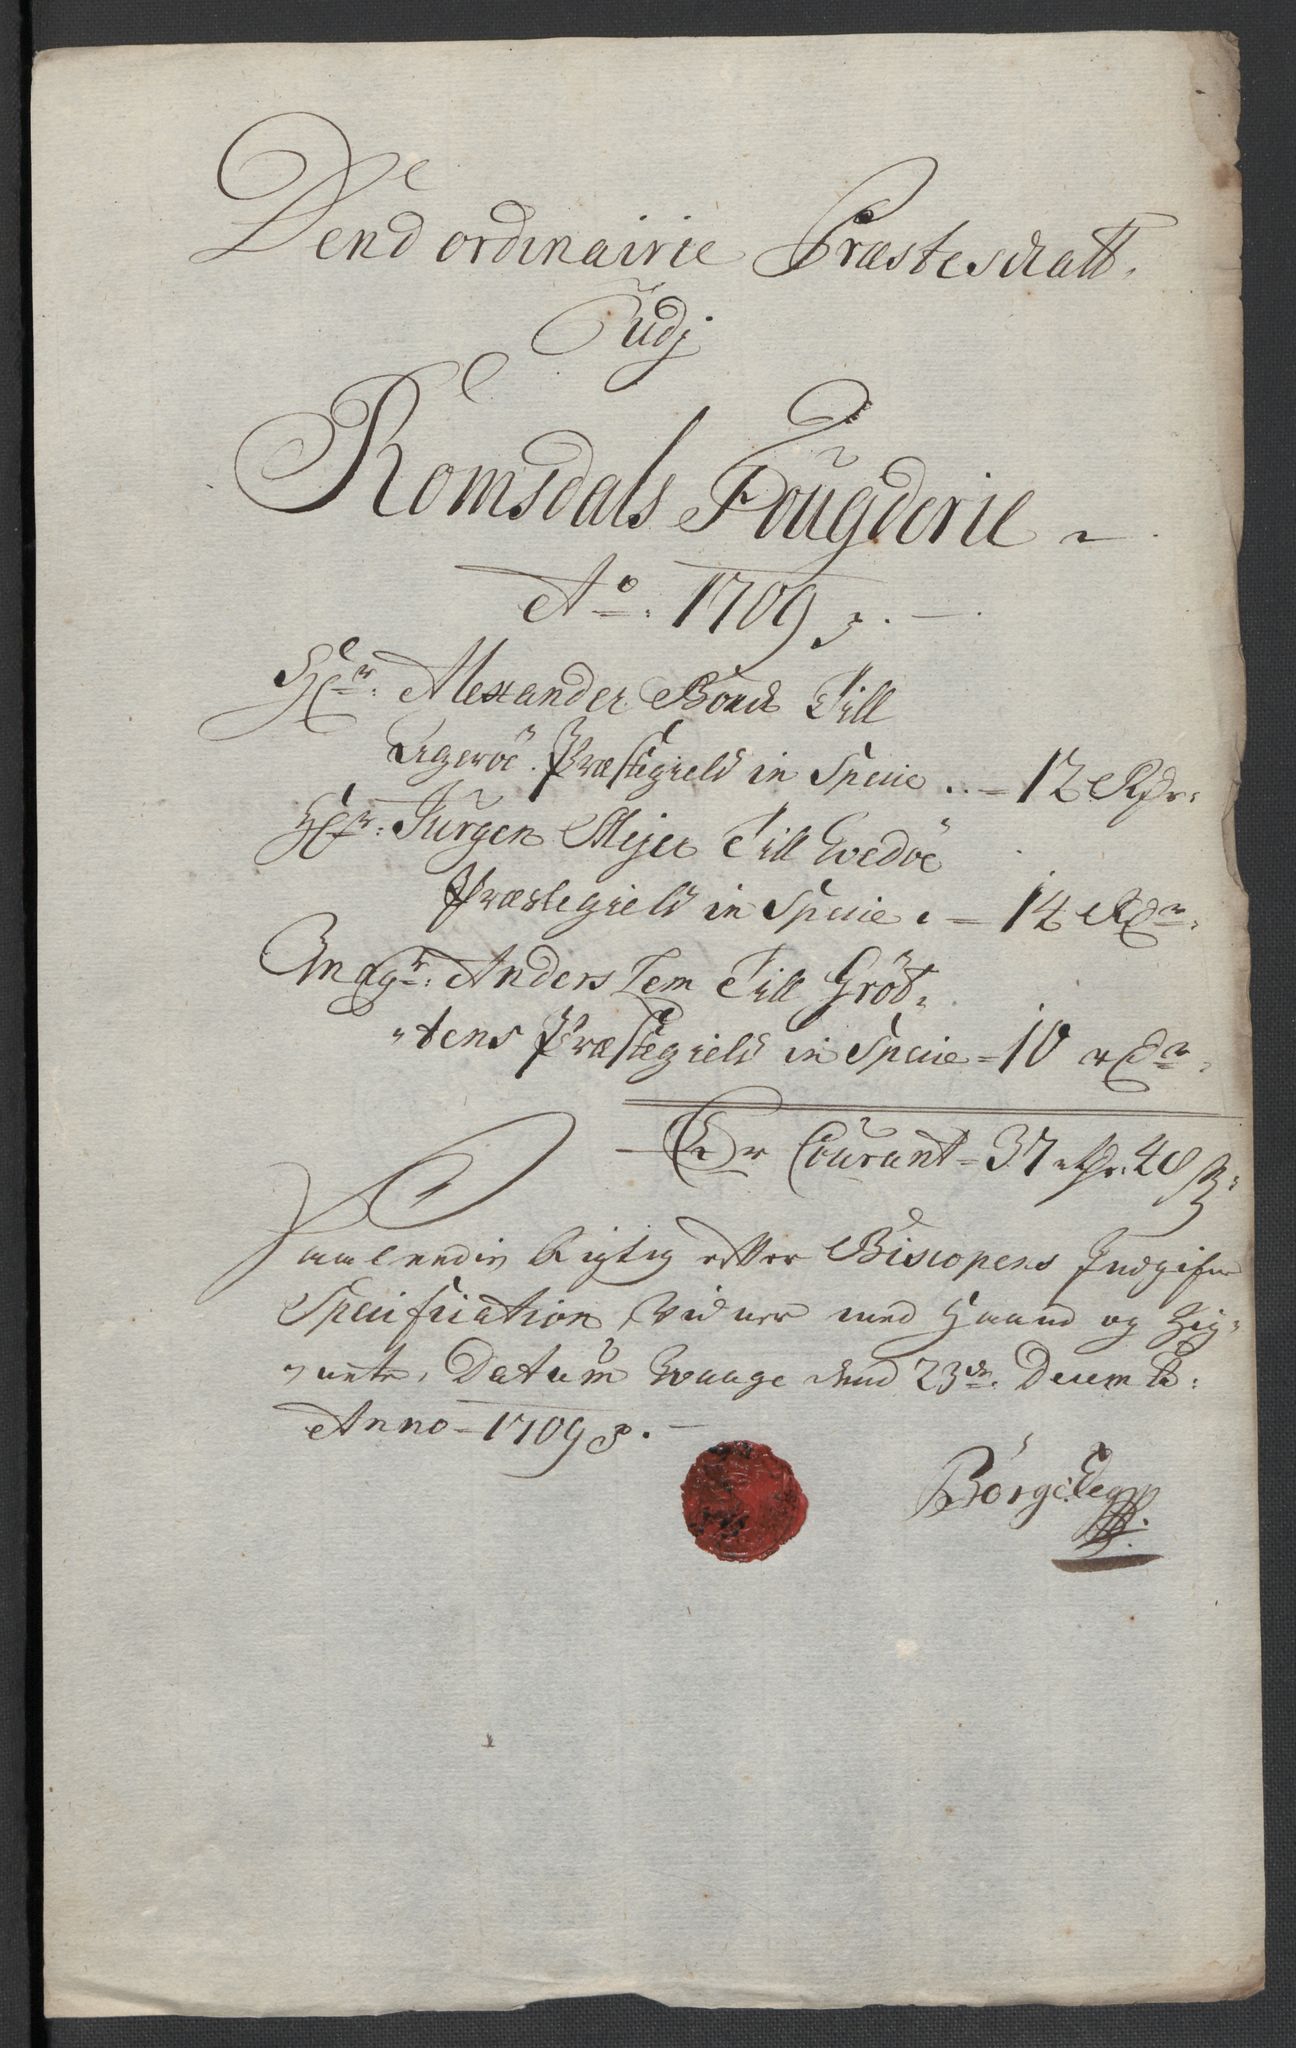 Dend ordinairie Præsteschatt,
Udj
Romsdals Fougderie
Ao. 1709
Hr. Alexander Bouch Till
Agerøe Præstegield in Specie .. 12 Rdr.
Hr. Jürgen Mejer Till Wedöe
Præstegield in Specie . 14 Rdr.
Magr. Anders Lem Till Gröt,
tens Præstegield in Specie - 10 Rdr.
Er Courant - 37 Rdr. 48 ß:
Saaleedis Rigtig efter Biscopens Indgifne
Specification, Vidner med Haand og Zig-
nete, Datum Waage dend 23de. Decemb:
Anno - 1709.
Börge